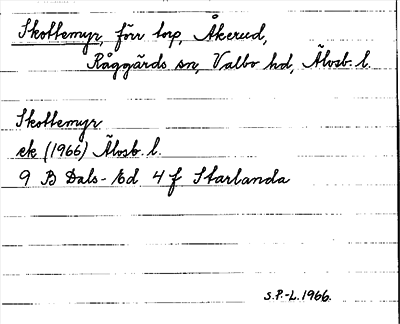 Skottemyr, förr torp, Åkerud,
Råggärds sn, Valbo hd, Älvsb. l.
Skottemyr
ek (1966) Älvsb. l.
9 B Dals-Ed 4 f Starlanda
S.P.-L. 1966.